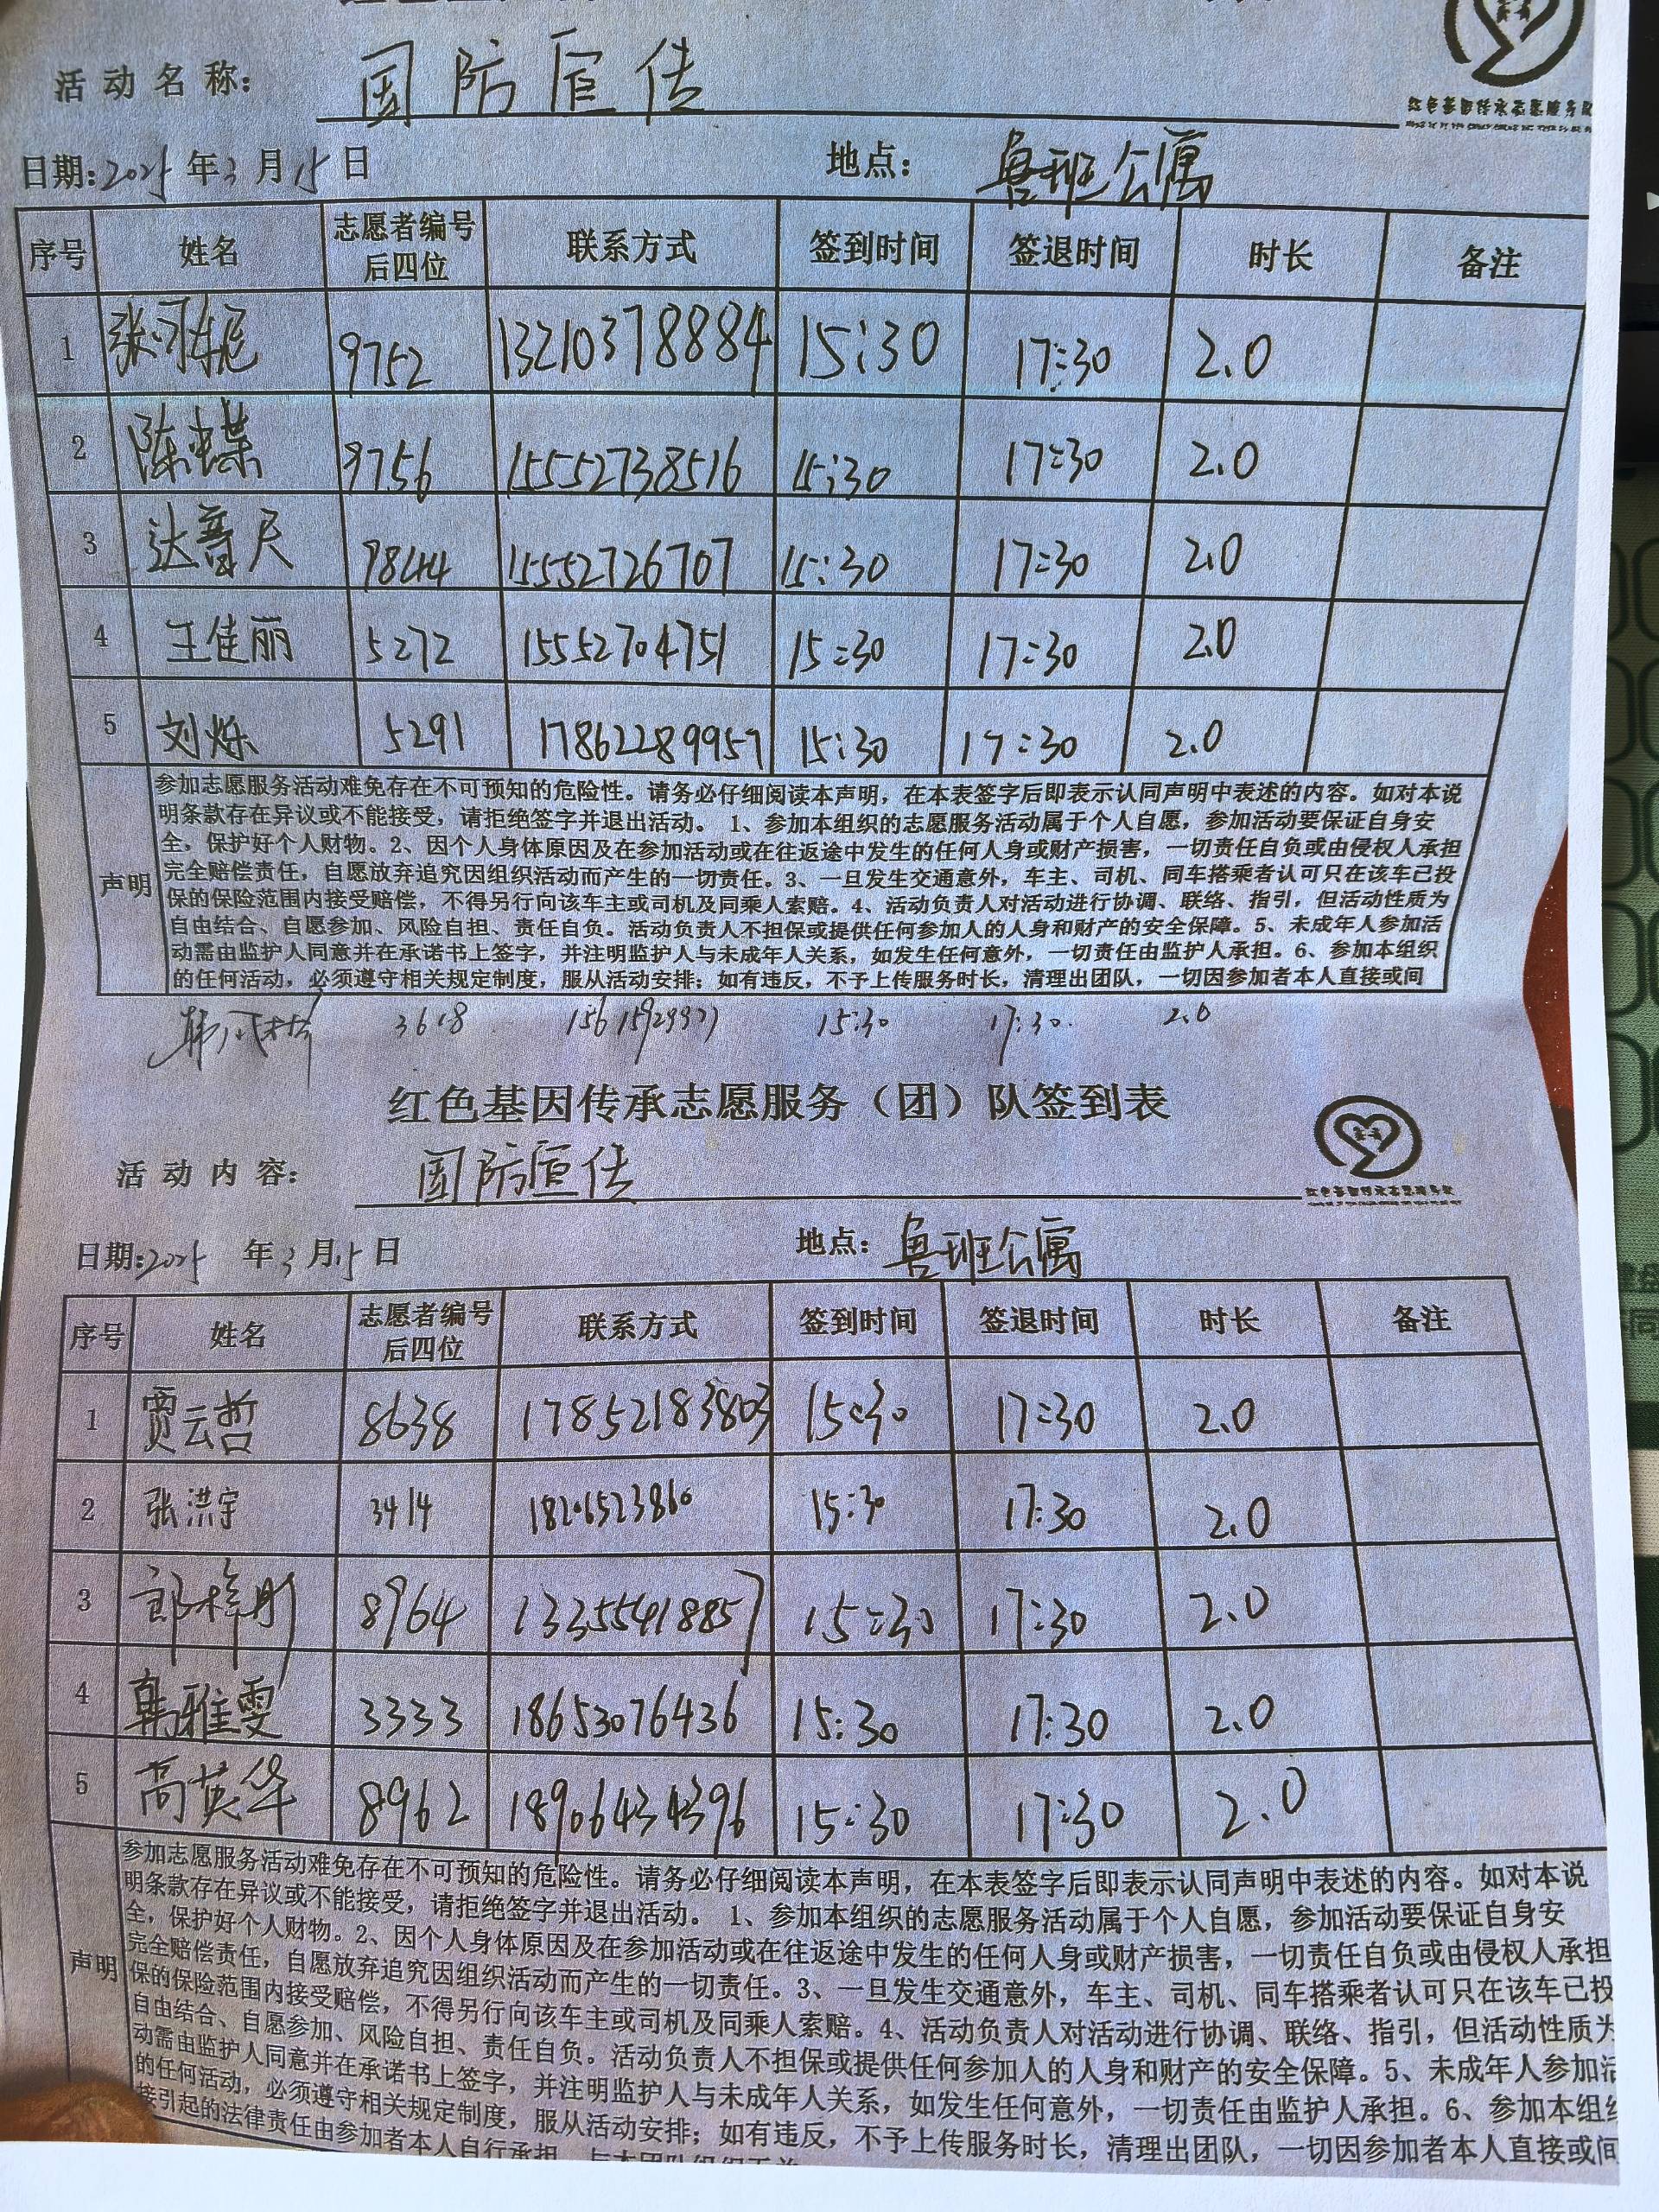 活动名称： 国防宣传
日期:2025年3月15日 地点： 鲁班公寓
序号 姓名 志愿者编号后四位 联系方式 签到时间 签退时间 时长 备注
1 张 9752 13210378884 15:30 17:30 2.0
2 陈 蝶 9756 15552738516 15:30 17:30 2.0
3 达 9844 15552726707 15:30 17:30 2.0
4 王佳丽 5272 15552704751 15:30 17:30 2.0
5 刘烁 5291 17862289957 15:30 17:30 2.0
声明
参加志愿服务活动难免存在不可预知的危险性。请务必仔细阅读本声明，在本表签字后即表示认同声明中表述的内容。如对本说
明条款存在异议或不能接受，请拒绝签字并退出活动。 1、参加本组织的志愿服务活动属于个人自愿，参加活动要保证自身安
全，保护好个人财物。2、因个人身体原因及在参加活动或在往返途中发生的任何人身或财产损害，一切责任自负或由侵权人承担
完全赔偿责任，自愿放弃追究因组织活动而产生的一切责任。3、一旦发生交通意外，车主、司机、同车搭乘者认可只在该车已投
保的保险范围内接受赔偿，不得另行向该车主或司机及同乘人索赔。4、活动负责人对活动进行协调、联络、指引，但活动性质为
自由结合、自愿参加、风险自担、责任自负。活动负责人不担保或提供任何参加人的人身和财产的安全保障。5、未成年人参加活
动需由监护人同意并在承诺书上签字，并注明监护人与未成年人关系，如发生任何意外，一切责任由监护人承担。6、参加本组织
的任何活动，必须遵守相关规定制度，服从活动安排；如有违反，不予上传服务时长，清理出团队，一切因参加者本人直接或间
3618 15:30 17:30 2.0
红色基因传承志愿服务（团）队签到表
活动内容： 国防宣传
日期:2025 年3月15日 地点： 鲁班公寓
序号 姓名 志愿者编号后四位 联系方式 签到时间 签退时间 时长 备注
1 贾云哲 8638 17852183803 15:30 17:30 2.0
2 张洪宇 3414 18206523860 15:30 17:30 2.0
3 郎梓彤 8964 13355418857 15:30 17:30 2.0
4 韩雅雯 3333 18653076436 15:30 17:30 2.0
5 高英华 8962 18906434396 15:30 17:30 2.0
声明
参加志愿服务活动难免存在不可预知的危险性。请务必仔细阅读本声明，在本表签字后即表示认同声明中表述的内容。如对本说
明条款存在异议或不能接受，请拒绝签字并退出活动。 1、参加本组织的志愿服务活动属于个人自愿，参加活动要保证自身安
全，保护好个人财物。2、因个人身体原因及在参加活动或在往返途中发生的任何人身或财产损害，一切责任自负或由侵权人承担
完全赔偿责任，自愿放弃追究因组织活动而产生的一切责任。3、一旦发生交通意外，车主、司机、同车搭乘者认可只在该车已投
保的保险范围内接受赔偿，不得另行向该车主或司机及同乘人索赔。4、活动负责人对活动进行协调、联络、指引，但活动性质为
自由结合、自愿参加、风险自担、责任自负。活动负责人不担保或提供任何参加人的人身和财产的安全保障。5、未成年人参加活
动需由监护人同意并在承诺书上签字，并注明监护人与未成年人关系，如发生任何意外，一切责任由监护人承担。6、参加本组织
的任何活动，必须遵守相关规定制度，服从活动安排；如有违反，不予上传服务时长，清理出团队，一切因参加者本人直接或间
接引起的法律责任由参加者本人自行承担